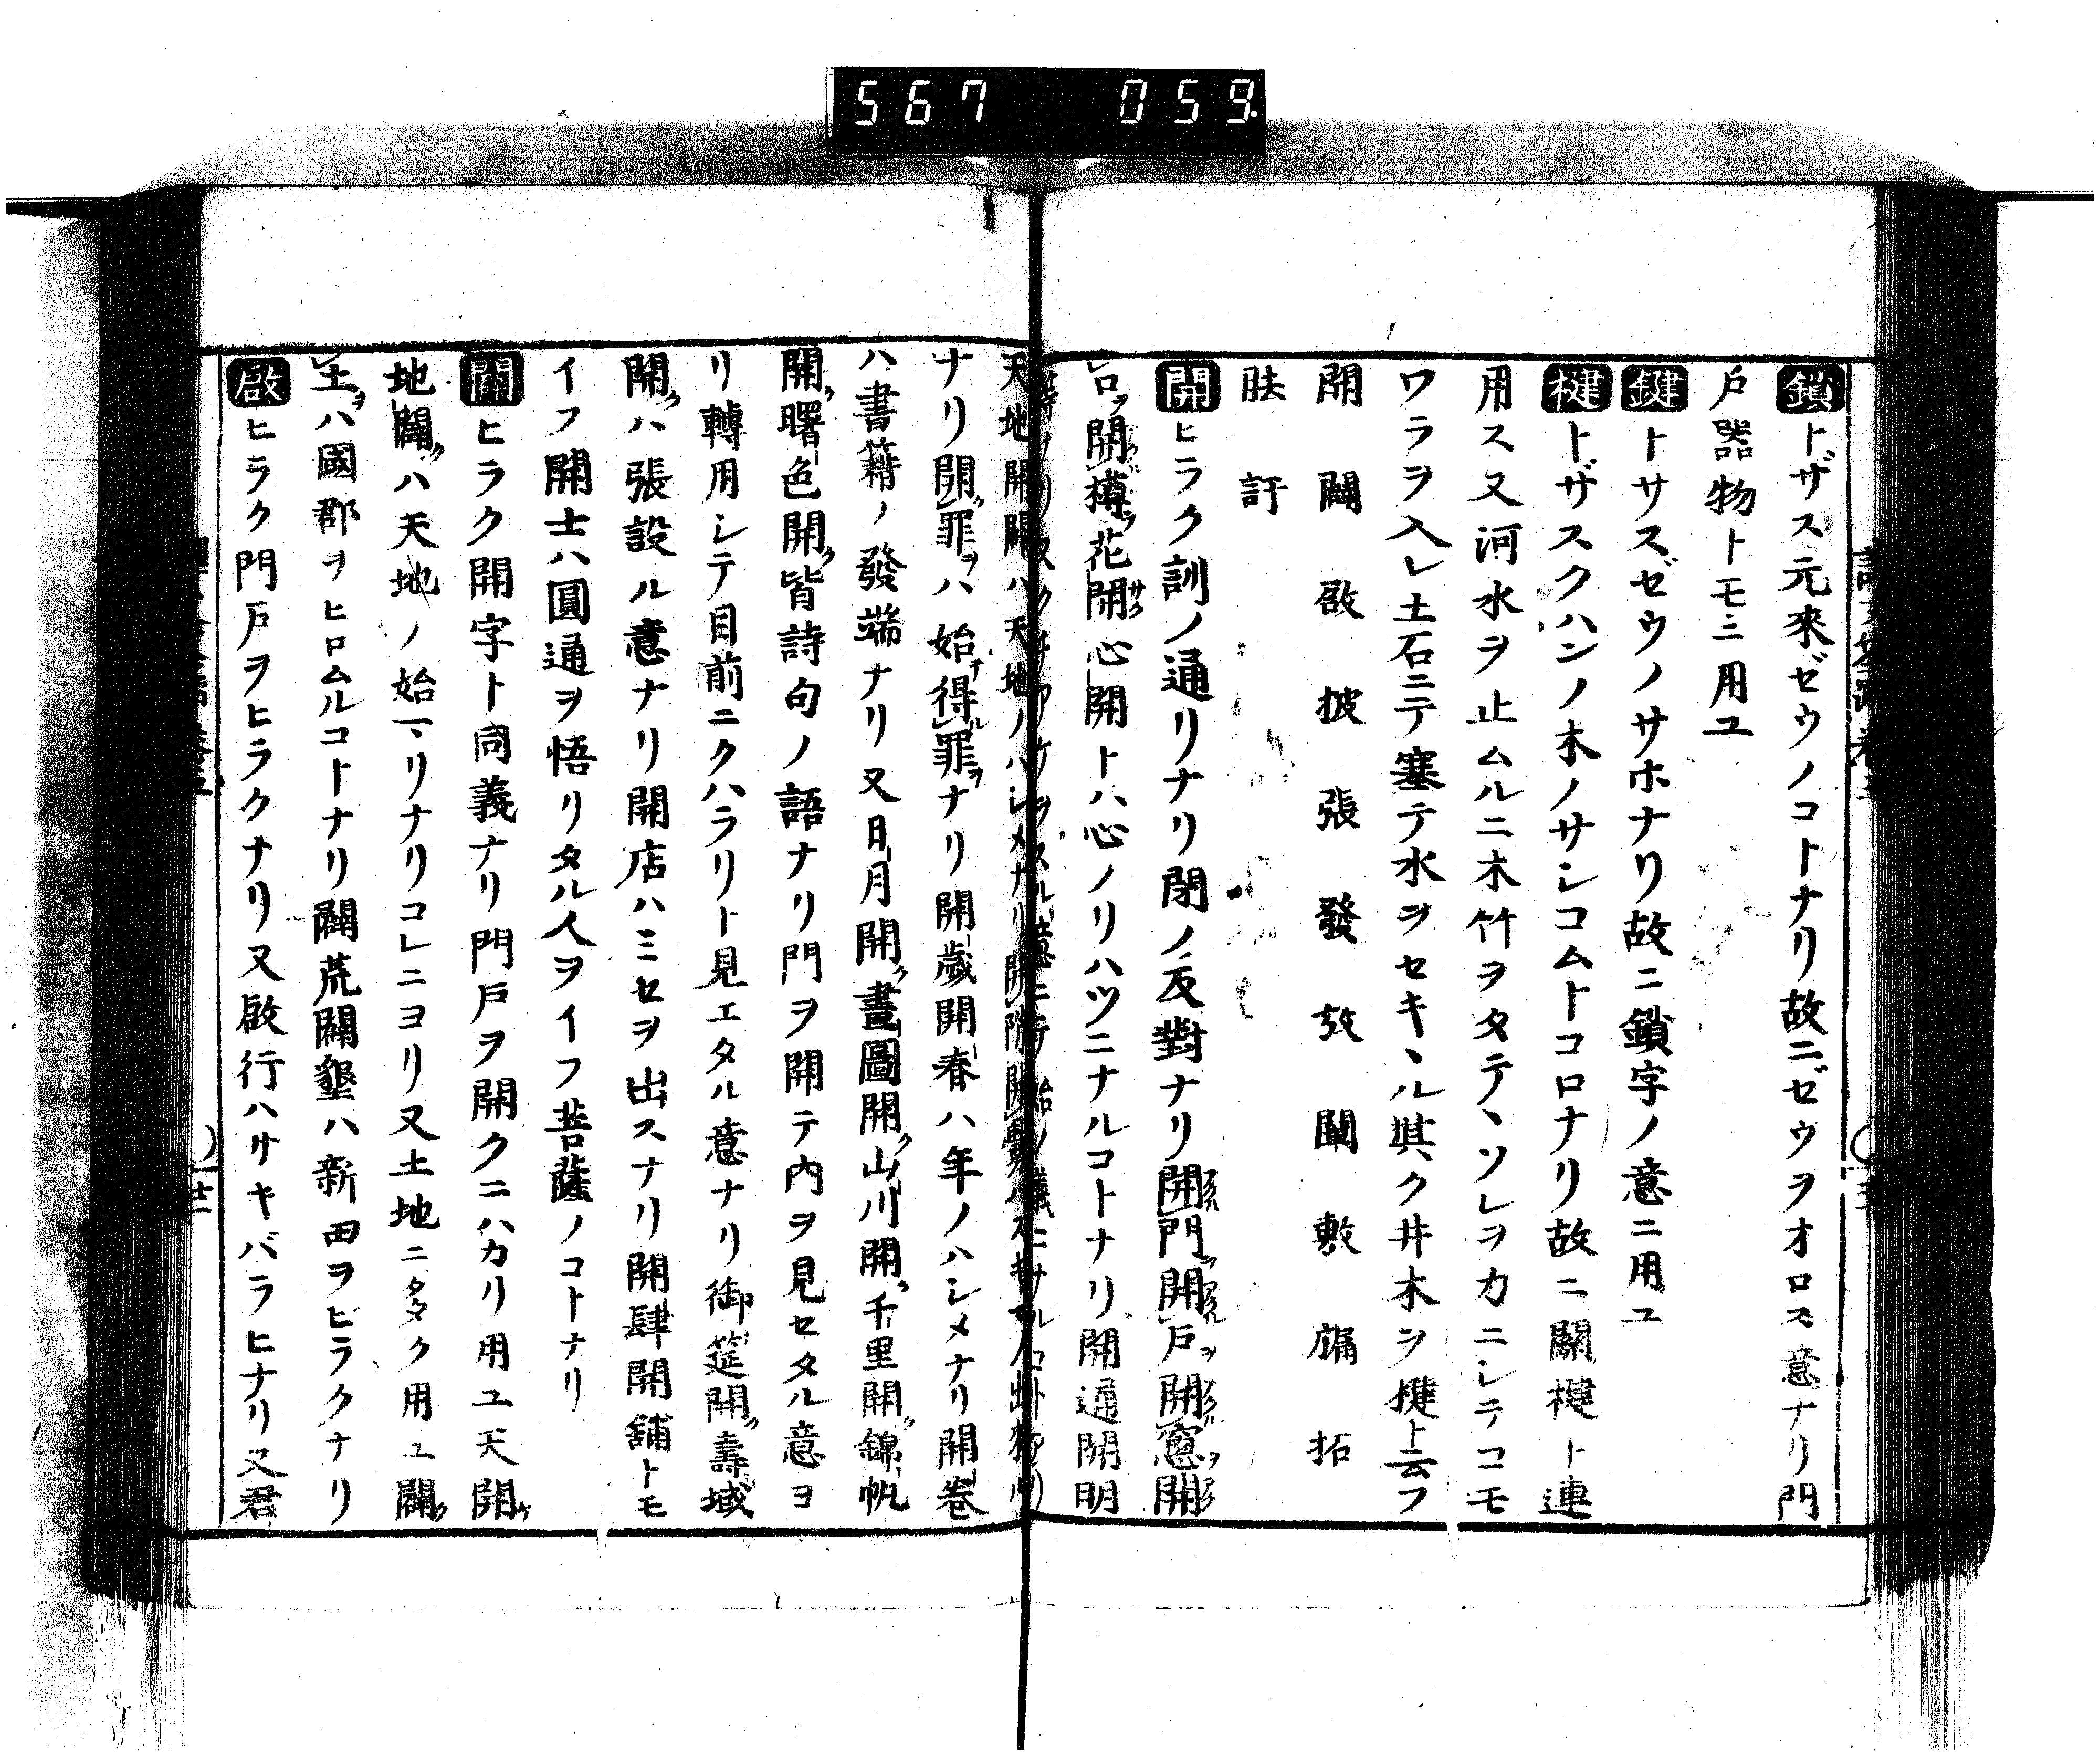 567 059
鎖トザス元來ゼウノコトナリ故ニゼウヲオロス意ナリ門
戶器物トモニ用ユ
鍵トサスゼウノサホナリ故ニ鎖字ノ意ニ用ユ
楗トザスクハンノ木ノサシコムトコロナリ故ニ關楗ト連
用ス又河水ヲ止ムルニ木竹ヲタテヽソレヲカニシテコモ
ワラヲ入レ土石ニテ塞テ水ヲセキヽル其クヰ木ヲ楗ト云フ
開闢啟披張發攷闓敷牖拓
胠訏
開ヒラク訓ノ通リナリ閉ノ反對ナリ開門開戶開窓開
口開樽花開心開トハ心ノリハツニナルコトナリ開通開明
天地開闢ハ天地ノハシメナリ
ナリ開罪ハ始得罪ナリ開歲開春ハ年ノハシメナリ開卷
ハ書籍ノ發端ナリ又日月開畫圖開山川開千里開錦帆
開曙色開皆詩句ノ語ナリ門ヲ開テ內ヲ見セタル意ヨ
リ轉用シテ目前ニクハラリト見エタル意ナリ御筵開壽域
開ハ張設ル意ナリ開店ハミセヲ出スナリ開肆開舖トモ
イフ開士ハ圓通ヲ悟リタル人ヲイフ菩薩ノコトナリ
闢ヒラク開字ト同義ナリ門戶ヲ開クニハカリ用ユ天開
地闢ハ天地ノ始マリナリコレニヨリ又土地ニ多ク用ユ闢
土ハ國郡ヲヒロムルコトナリ闢荒闢墾ハ新田ヲヒラクナリ
啟ヒラク門戶ヲヒラクナリ又啟行ハサキバラヒナリ又君